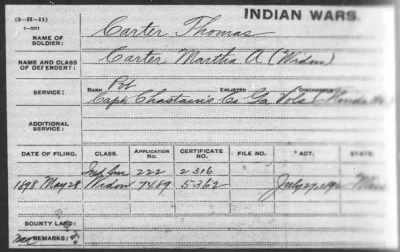 INDIAN WARS.
(3-25-11)
NAME OF SOLDIER: Carter Thomas
NAME AND CLASS OF DEPENDENT: Carter Martha A (Widow)
SERVICE: RANK Pvt ENLISTED DISCHARGED
Capt Chastain's Co Ga Vols
ADDITIONAL SERVICE:
DATE OF FILING. CLASS. APPLICATION No. CERTIFICATE No. FILE NO. ACT. STATE
222 2316
1898 May 28 Widow 7489 5362 July 27, 1892
BOUNTY LAND:
REMARKS: